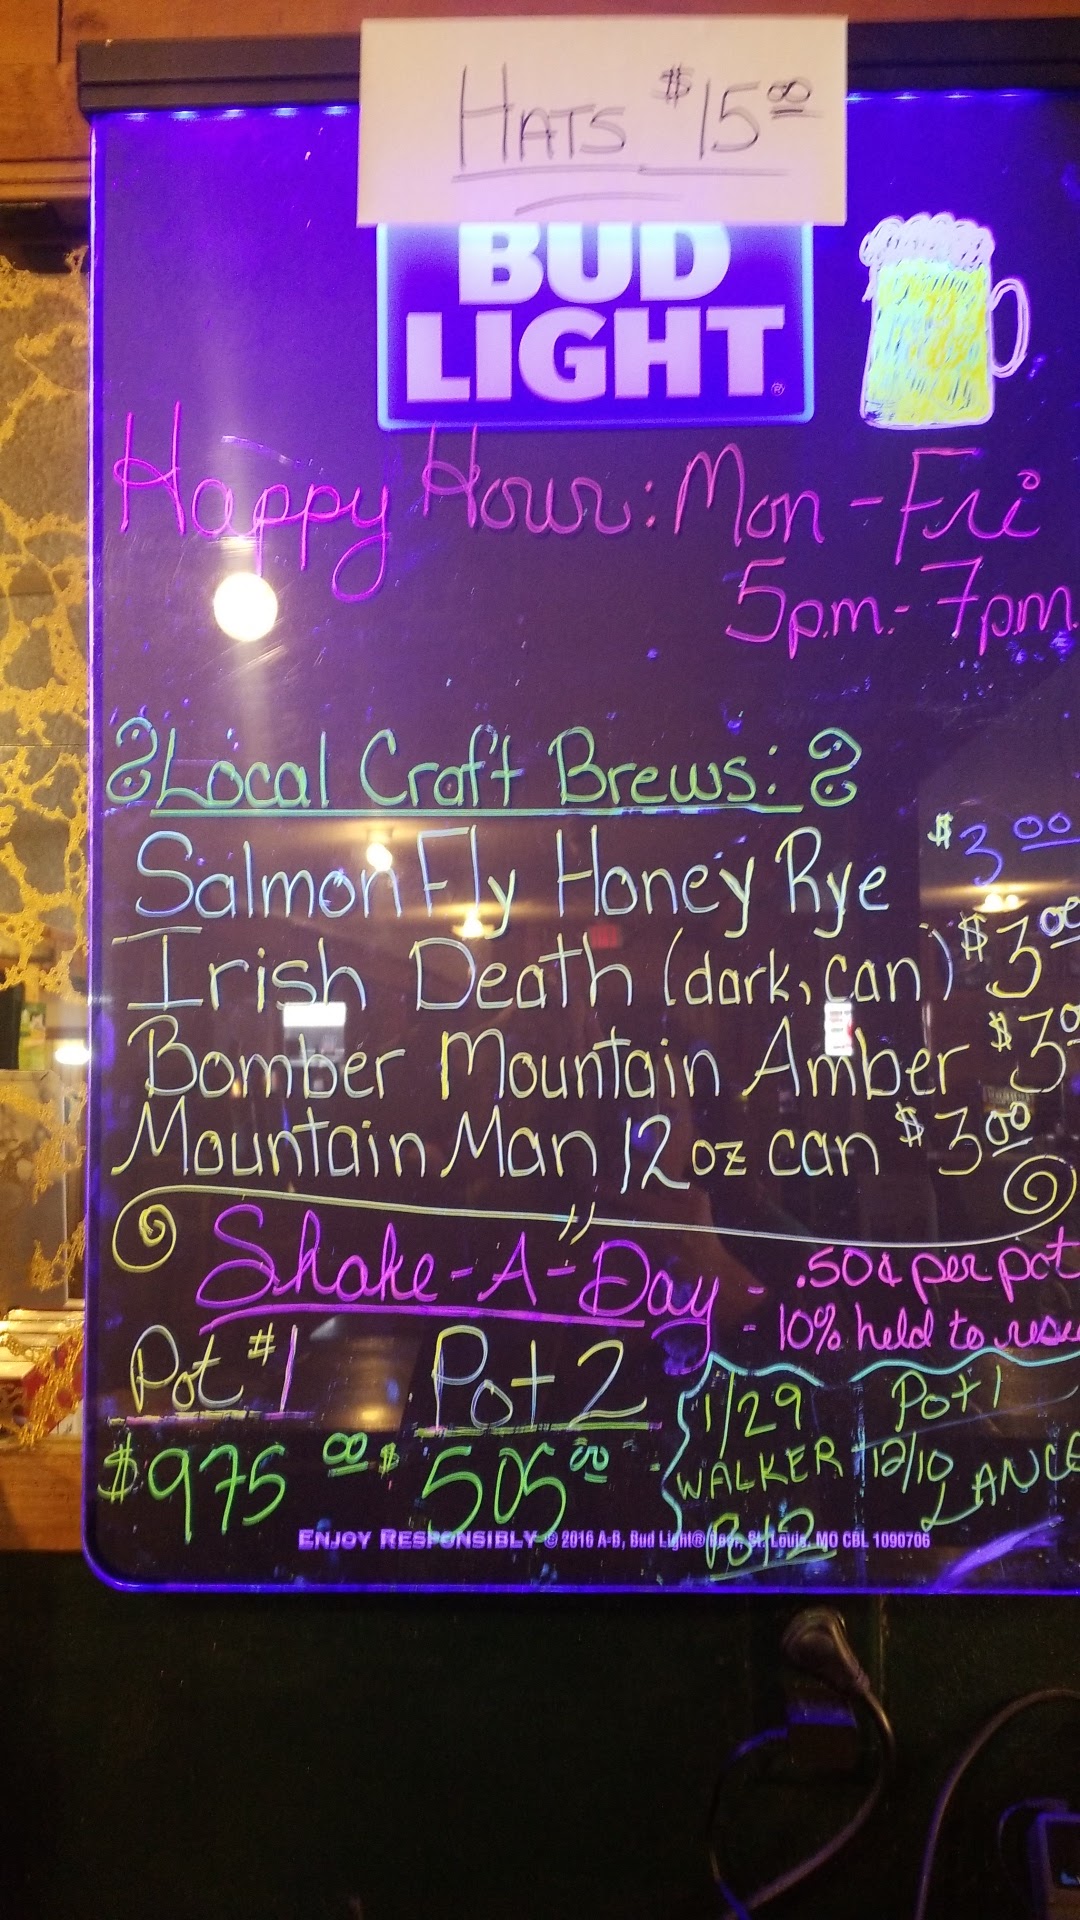 HATS $15.00
BUD
LIGHT®
Happy Hour: Mon-Fri
5p.m.-7p.m.
Local Craft Brews:
Salmon Fly Honey Rye $3.00
Irish Death (dark, can) $3.00
Bomber Mountain Amber $3.0
Mountain Man 12oz can $3.00
Shake-A-Day - .50¢ per pot
- 10% held to
Pot #1 Pot 2
$975.00 $505.00
1/29
WALKER
Pot 2
Pot 1
12/10
LANCE
ENJOY RESPONSIBLY © 2016 A-B, Bud Light® Beer, St. Louis, MO CBL 1090706